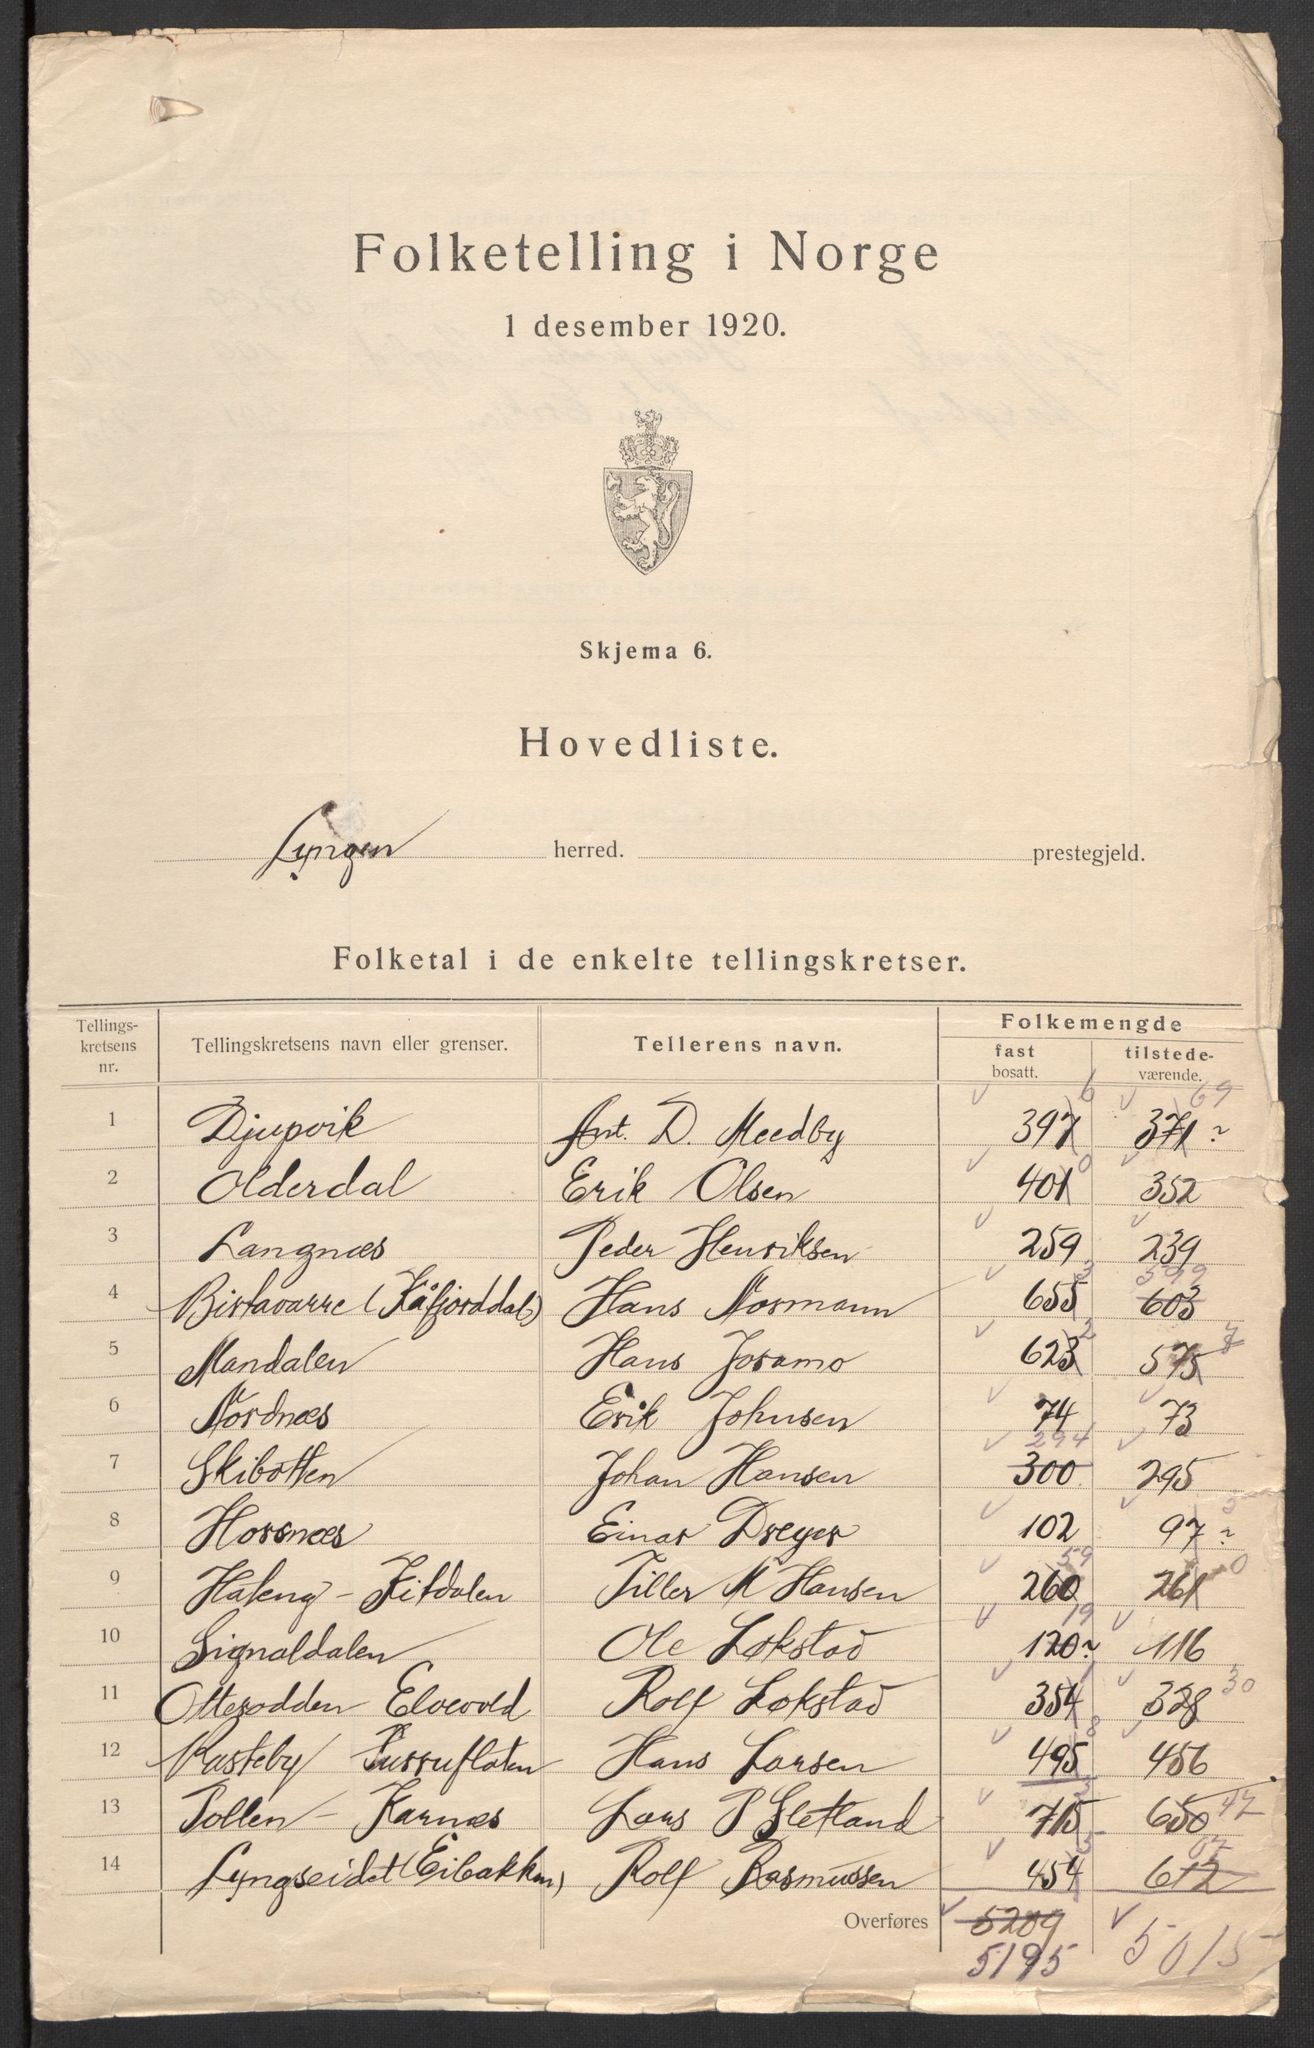 Folketelling i Norge
1 desember 1920.
Skjema 6.
Hovedliste.
Lyngen herred. prestegjeld.
Folketal i de enkelte tellingskretser.
Tellings-kretsens nr. Tellingskretsens navn eller grenser. Tellerens navn. Folkemengde
fast bosatt. tilstede-værende.
1 Djupvik Ant. D. Meedby 397 6 371 69 ~
2 Olderdal Erik Olsen 401 0 352
3 Langnæs Peder Henriksen 259 239
4 Birtavarre (Kåfjorddal) Hans Normann 655 3 603 599
5 Mandalen Hans Joramo 623 2 575 7
6 Nordnæs Erik Johnsen 74 73
7 Skibotten Johan Hansen 300 294 295
8 Horsnæs Einar Dreyer 102 97 ~
9 Hateng - Kitdalen Tiller M Hansen 260 59 261 0
10 Signaldalen Ole Lokstad 120 19 ~ 116
11 Otterodden Elvevold Rolf Lokstad 354 1 328 30
12 Rasteby Furruflaten Hans Larsen 495 8 456
13 Pollen - Karnæs Lars P Sletland 715 650 47
14 Lyngseidet (Eibakken) Rolf Rasmussen 454 5 612 07
Overføres 5209
5195 5015